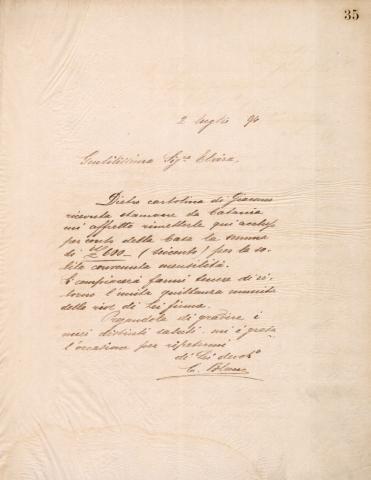 35
2 luglio 90
Gentilissima Sig.ra Elvira,
Dietro cartolina di Giacomo
ricevuta stamane da Catania
mi affretto rimetterle qui accluso
per conto della Casa la somma
di £600 – (seicento) per la so-
lita convenuta mensilità.
E compiacerà farmi tenere di ri-
torno l'unita quittanza munita
della di Lei firma.
Pregandola di gradire i
miei distinti saluti mi è grata
l'occasione per ripetermi
di Lei devmo
C. Blanc